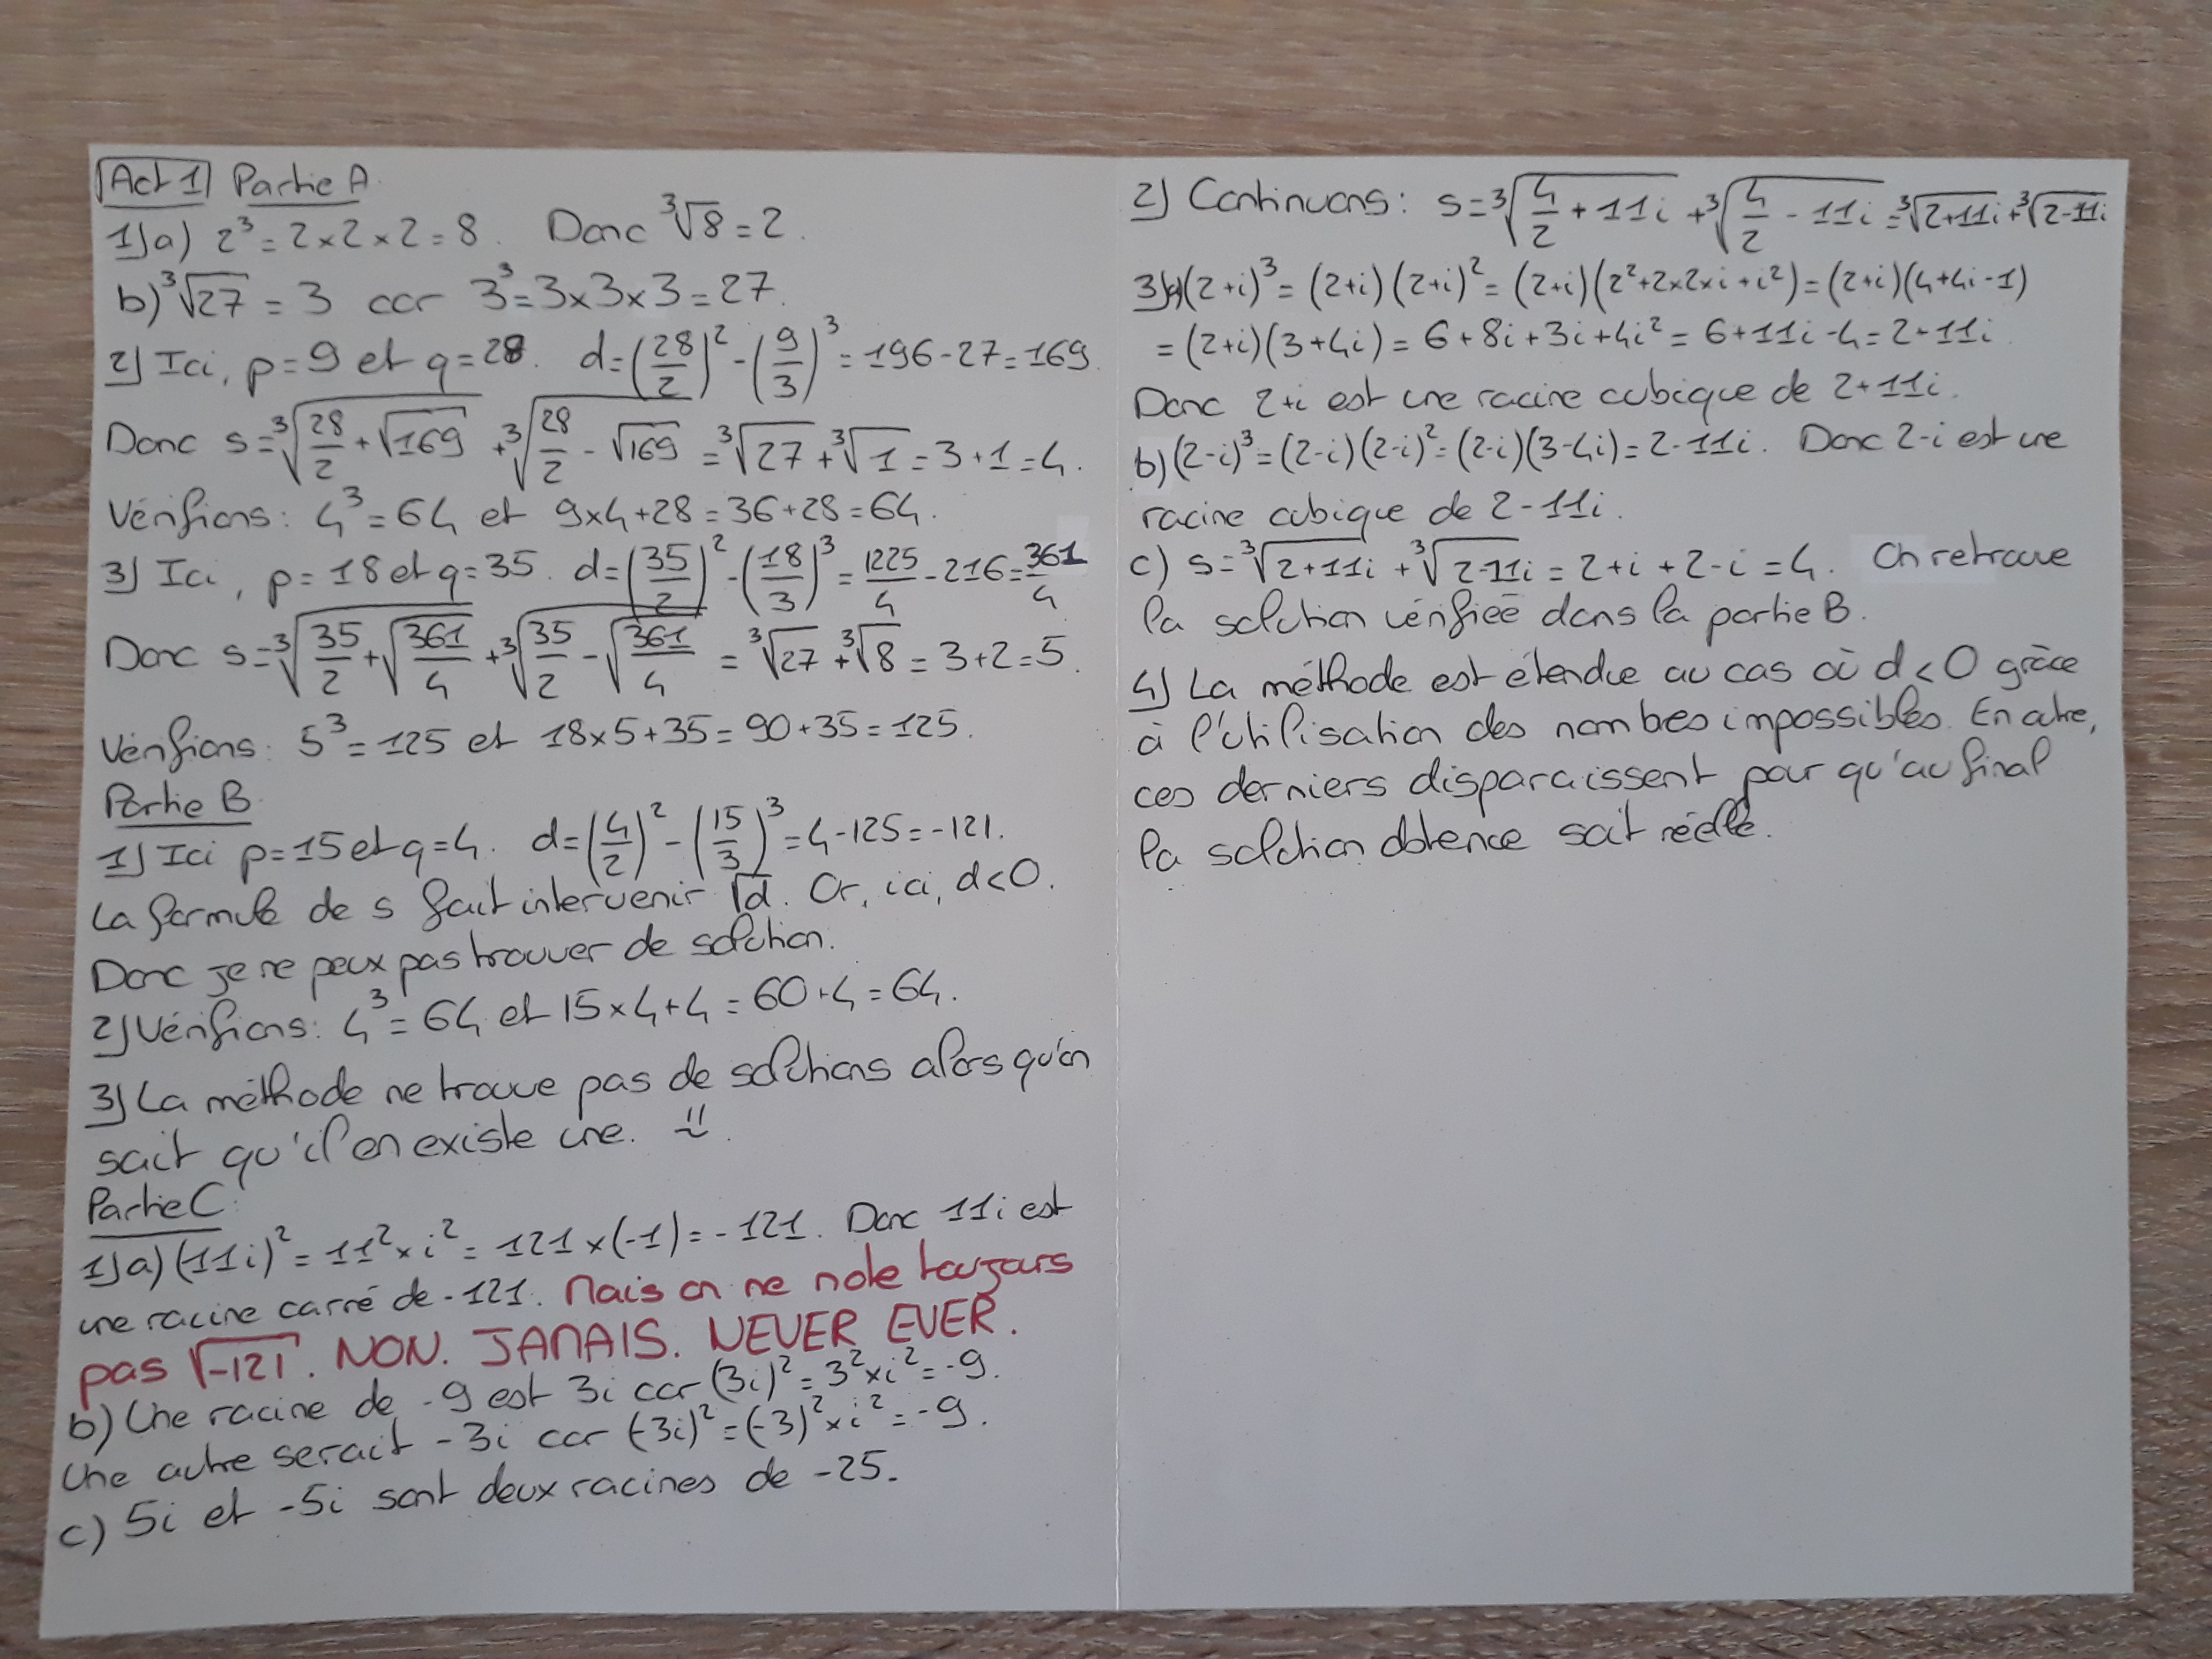 Act 1 Partie A
1) a) 2³ = 2×2×2 = 8. Donc ³√8 = 2.
b) ³√27 = 3 car 3³ = 3×3×3 = 27.
2) Ici, p = 9 et q = 28. d = (28/2)² - (9/3)³ = 196 - 27 = 169.
Donc s = ³√(28/2 + √169) + ³√(28/2 - √169) = ³√27 + ³√1 = 3 + 1 = 4.
Vérifions : 4³ = 64 et 9×4+28 = 36+28 = 64.
3) Ici, p = 18 et q = 35. d = (35/2)² - (18/3)³ = 1225/4 - 216 = 361/4
Donc s = ³√(35/2 + √(361/4)) + ³√(35/2 - √(361/4)) = ³√27 + ³√8 = 3+2 = 5.
Vérifions : 5³ = 125 et 18×5+35 = 90+35 = 125.
Partie B
1) Ici p = 15 et q = 4. d = (4/2)² - (15/3)³ = 4 - 125 = -121.
La formule de s fait intervenir √d. Or, ici, d < 0.
Donc je ne peux pas trouver de solution.
2) Vérifions : 4³ = 64 et 15×4+4 = 60+4 = 64.
3) La méthode ne trouve pas de solutions alors qu'on
sait qu'il en existe une.
Partie C :
1) a) (11i)² = 11² × i² = 121 × (-1) = -121. Donc 11i est
une racine carré de -121. Mais on ne note toujours
pas √-121. NON. JAMAIS. NEVER EVER.
b) Une racine de -9 est 3i car (3i)² = 3² × i² = -9.
Une autre serait -3i car (-3i)² = (-3)² × i² = -9.
c) 5i et -5i sont deux racines de -25.
2) Continuons : s = ³√(4/2 + 11i) + ³√(4/2 - 11i) = ³√(2+11i) + ³√(2-11i)
3) a) (2+i)³ = (2+i)(2+i)² = (2+i)(2²+2×2×i+i²) = (2+i)(4+4i-1)
= (2+i)(3+4i) = 6+8i+3i+4i² = 6+11i-4 = 2+11i
Donc 2+i est une racine cubique de 2+11i.
b) (2-i)³ = (2-i)(2-i)² = (2-i)(3-4i) = 2-11i. Donc 2-i est une
racine cubique de 2-11i.
c) s = ³√(2+11i) + ³√(2-11i) = 2+i+2-i = 4. On retrouve
la solution vérifiée dans la partie B.
4) La méthode est étendue au cas où d < 0 grâce
à l'utilisation des nombres impossibles. En outre,
ces derniers disparaissent pour qu'au final
la solution obtenue soit réelle.